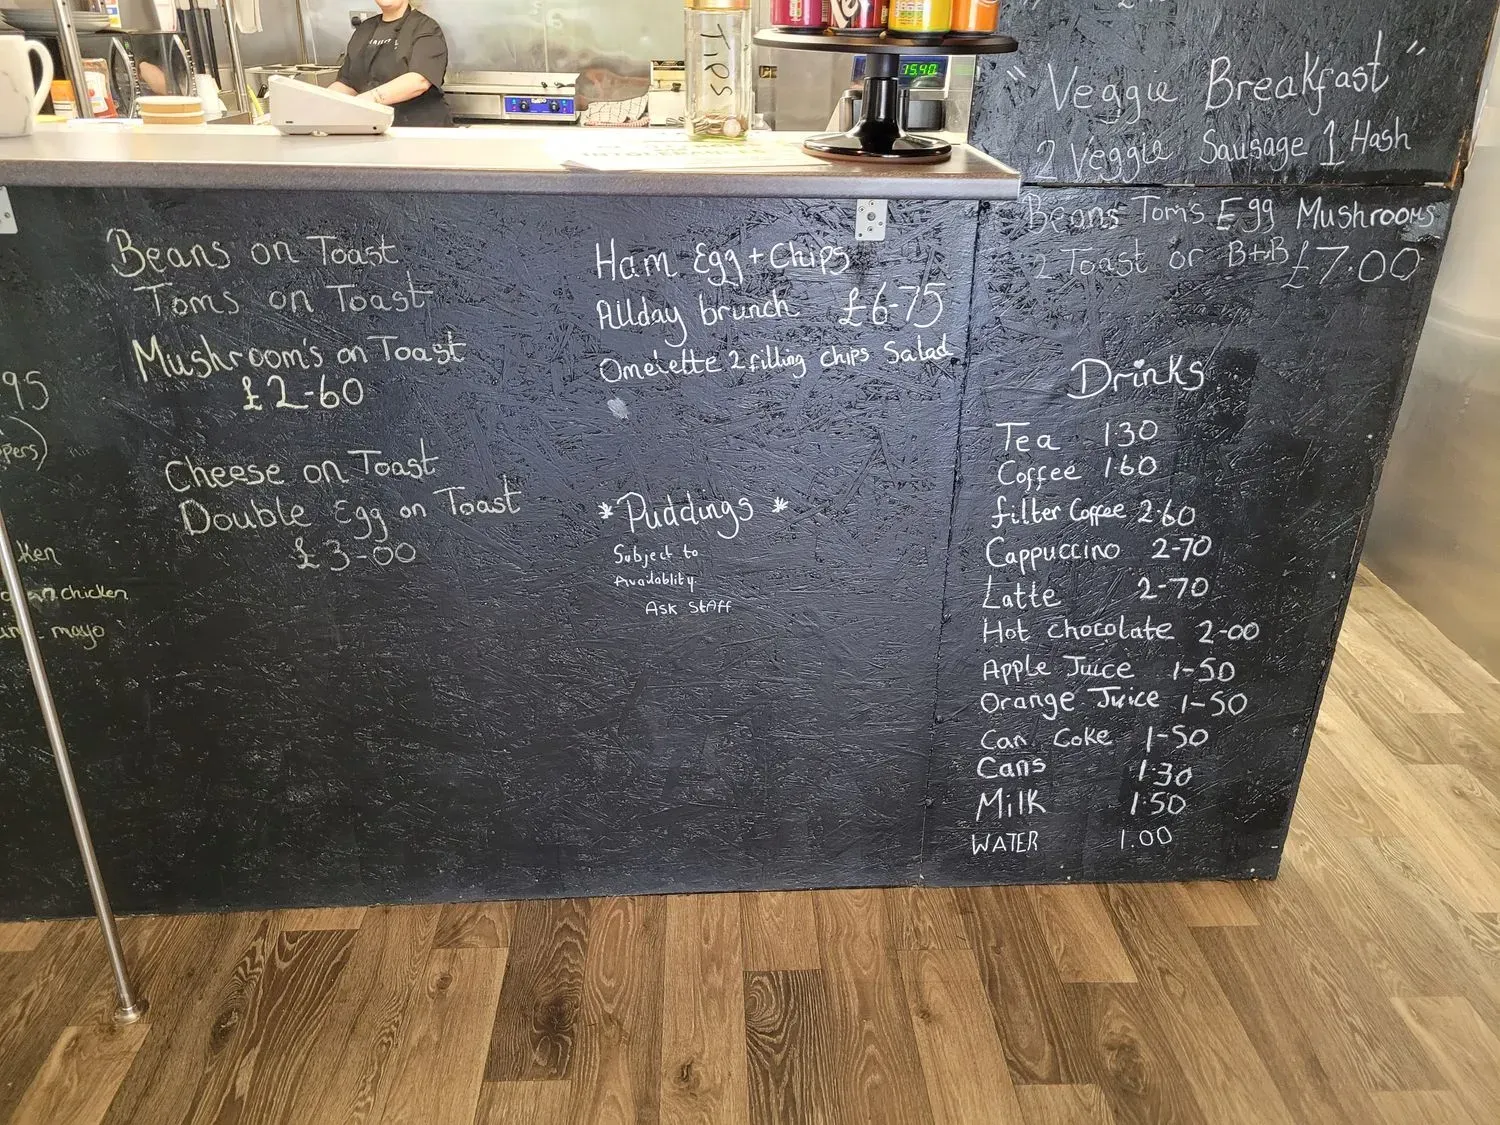 95
pers)
chicken
mayo
Beans on Toast
Toms on Toast
Mushroom's on Toast
£2-60
Cheese on Toast
Double Egg on Toast
£3-00
Ham Egg + Chips
Allday brunch £6-75
Omelette 2 filling chips Salad
*Puddings*
Subject to
Availablity
Ask Staff
TIPS
15:40
"Veggie Breakfast"
2 Veggie Sausage 1 Hash
Beans Tom's Egg Mushrooms
2 Toast or B+B £7.00
Drinks
Tea 1.30
Coffee 1.60
filter Coffee 2.60
Cappuccino 2-70
Latte 2-70
Hot chocolate 2-00
Apple Juice 1-50
Orange Juice 1-50
Can Coke 1-50
Cans 1.30
Milk 1.50
WATER 1.00